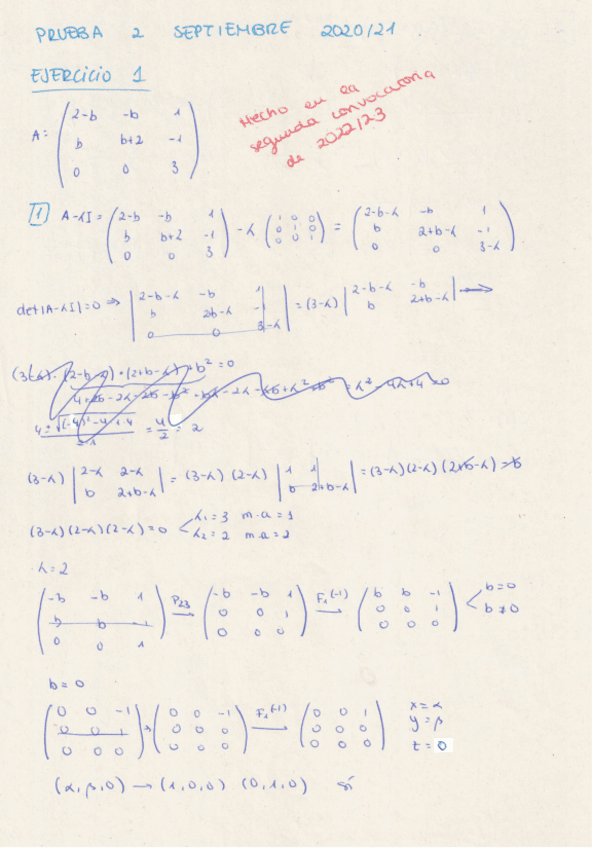 PRUEBA 2 SEPTIEMBRE 2020/21.
EJERCICIO 1
Hecho en la
segunda convocatoria
de 2022/23
A: ( 2-b -b 1
b b+2 -1
0 0 3 )
1 A-λI = ( 2-b -b 1 ; b b+2 -1 ; 0 0 3 ) - λ ( 1 0 0 ; 0 1 0 ; 0 0 1 ) = ( 2-b-λ -b 1 ; b 2+b-λ -1 ; 0 0 3-λ )
det|A-λI|=0 ⇒ | 2-b-λ -b 1 ; b 2b-λ -1 ; 0 0 3-λ | = (3-λ) | 2-b-λ -b ; b 2+b-λ | →
(3-λ)·(2-b-λ)·(2+b-λ)+b² = 0
(3-λ) | 2-λ 2-λ ; b 2+b-λ | = (3-λ)(2-λ) | 1 1 ; b 2+b-λ | = (3-λ)(2-λ)(2+b-λ)-b
(3-λ)(2-λ)(2-λ)=0 < λ₁=3 m·a=1
λ₂=2 m.a=2
λ=2
( -b -b 1 ; b b -1 ; 0 0 1 ) P₂₃ → ( -b -b 1 ; 0 0 1 ; 0 0 0 ) F₁(-1) → ( b b -1 ; 0 0 1 ; 0 0 0 ) < b=0
b≠0
b=0
( 0 0 -1 ; 0 0 1 ; 0 0 0 ) → ( 0 0 -1 ; 0 0 0 ; 0 0 0 ) F₁(-1) → ( 0 0 1 ; 0 0 0 ; 0 0 0 ) x=α
y=β
z=0
(α,β,0) → (1,0,0) (0,1,0) sí